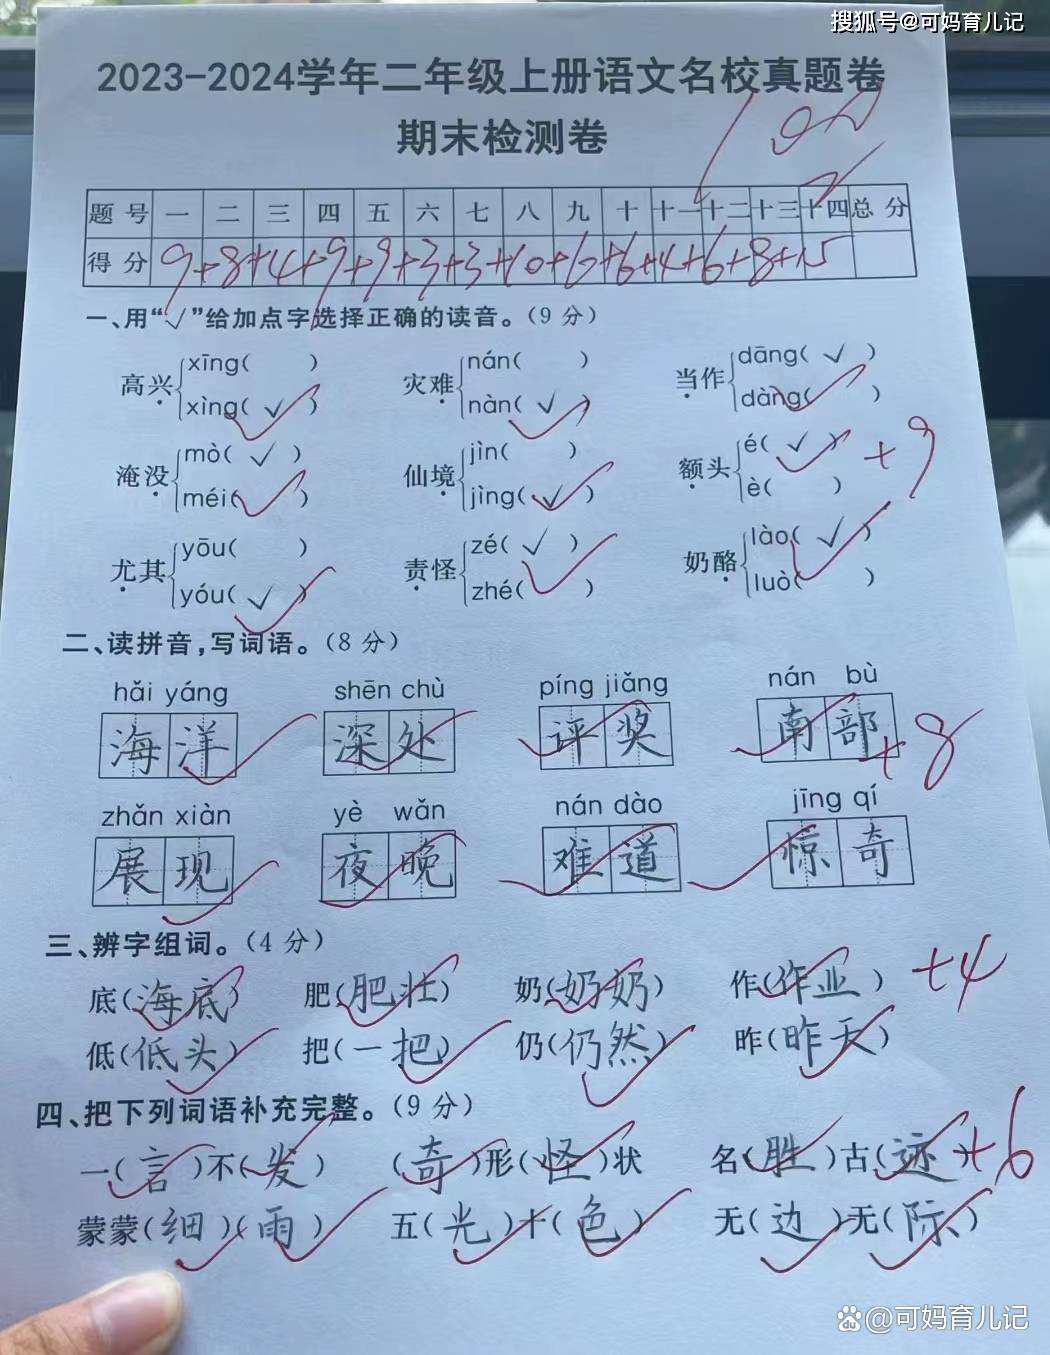 搜狐号@可妈育儿记
2023-2024学年二年级上册语文名校真题卷
期末检测卷
100
题号 一 二 三 四 五 六 七 八 九 十 十一 十二 十三 十四 总分
得分 9+8+4+9+9+3+3+10+6+6+4+6+8+15
一、用“√”给加点字选择正确的读音。(9分)
高兴 xīng( ) xìng( √ ) 灾难 nán( ) nàn( √ ) 当作 dāng( √ ) dàng( )
淹没 mò( √ ) méi( ) 仙境 jìn( ) jìng( √ ) 额头 é( √ ) è( ) +9
尤其 yōu( ) yóu( √ ) 责怪 zé( √ ) zhé( ) 奶酪 lào( √ ) luò( )
二、读拼音,写词语。(8分)
hǎi yáng shēn chù píng jiǎng nán bù
海洋 深处 评奖 南部 +8
zhǎn xiàn yè wǎn nán dào jīng qí
展现 夜晚 难道 惊奇
三、辨字组词。(4分)
底(海底) 肥(肥壮) 奶(奶奶) 作(作业) +4
低(低头) 把(一把) 仍(仍然) 昨(昨天)
四、把下列词语补充完整。(9分)
一(言)不(发) (奇)形(怪)状 名(胜)古(迹) +6
蒙蒙(细)(雨) 五(光)十(色) 无(边)无(际)
Baidu @可妈育儿记